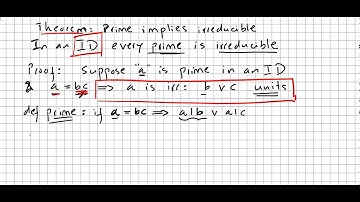 Theorem: Prime implies irreducible
In an ID every prime is irreducible
Proof: Suppose "a is prime in an ID
& a = bc ⟹ a is irr: b v c units
def prime: if a = bc ⟹ a|b v a|c